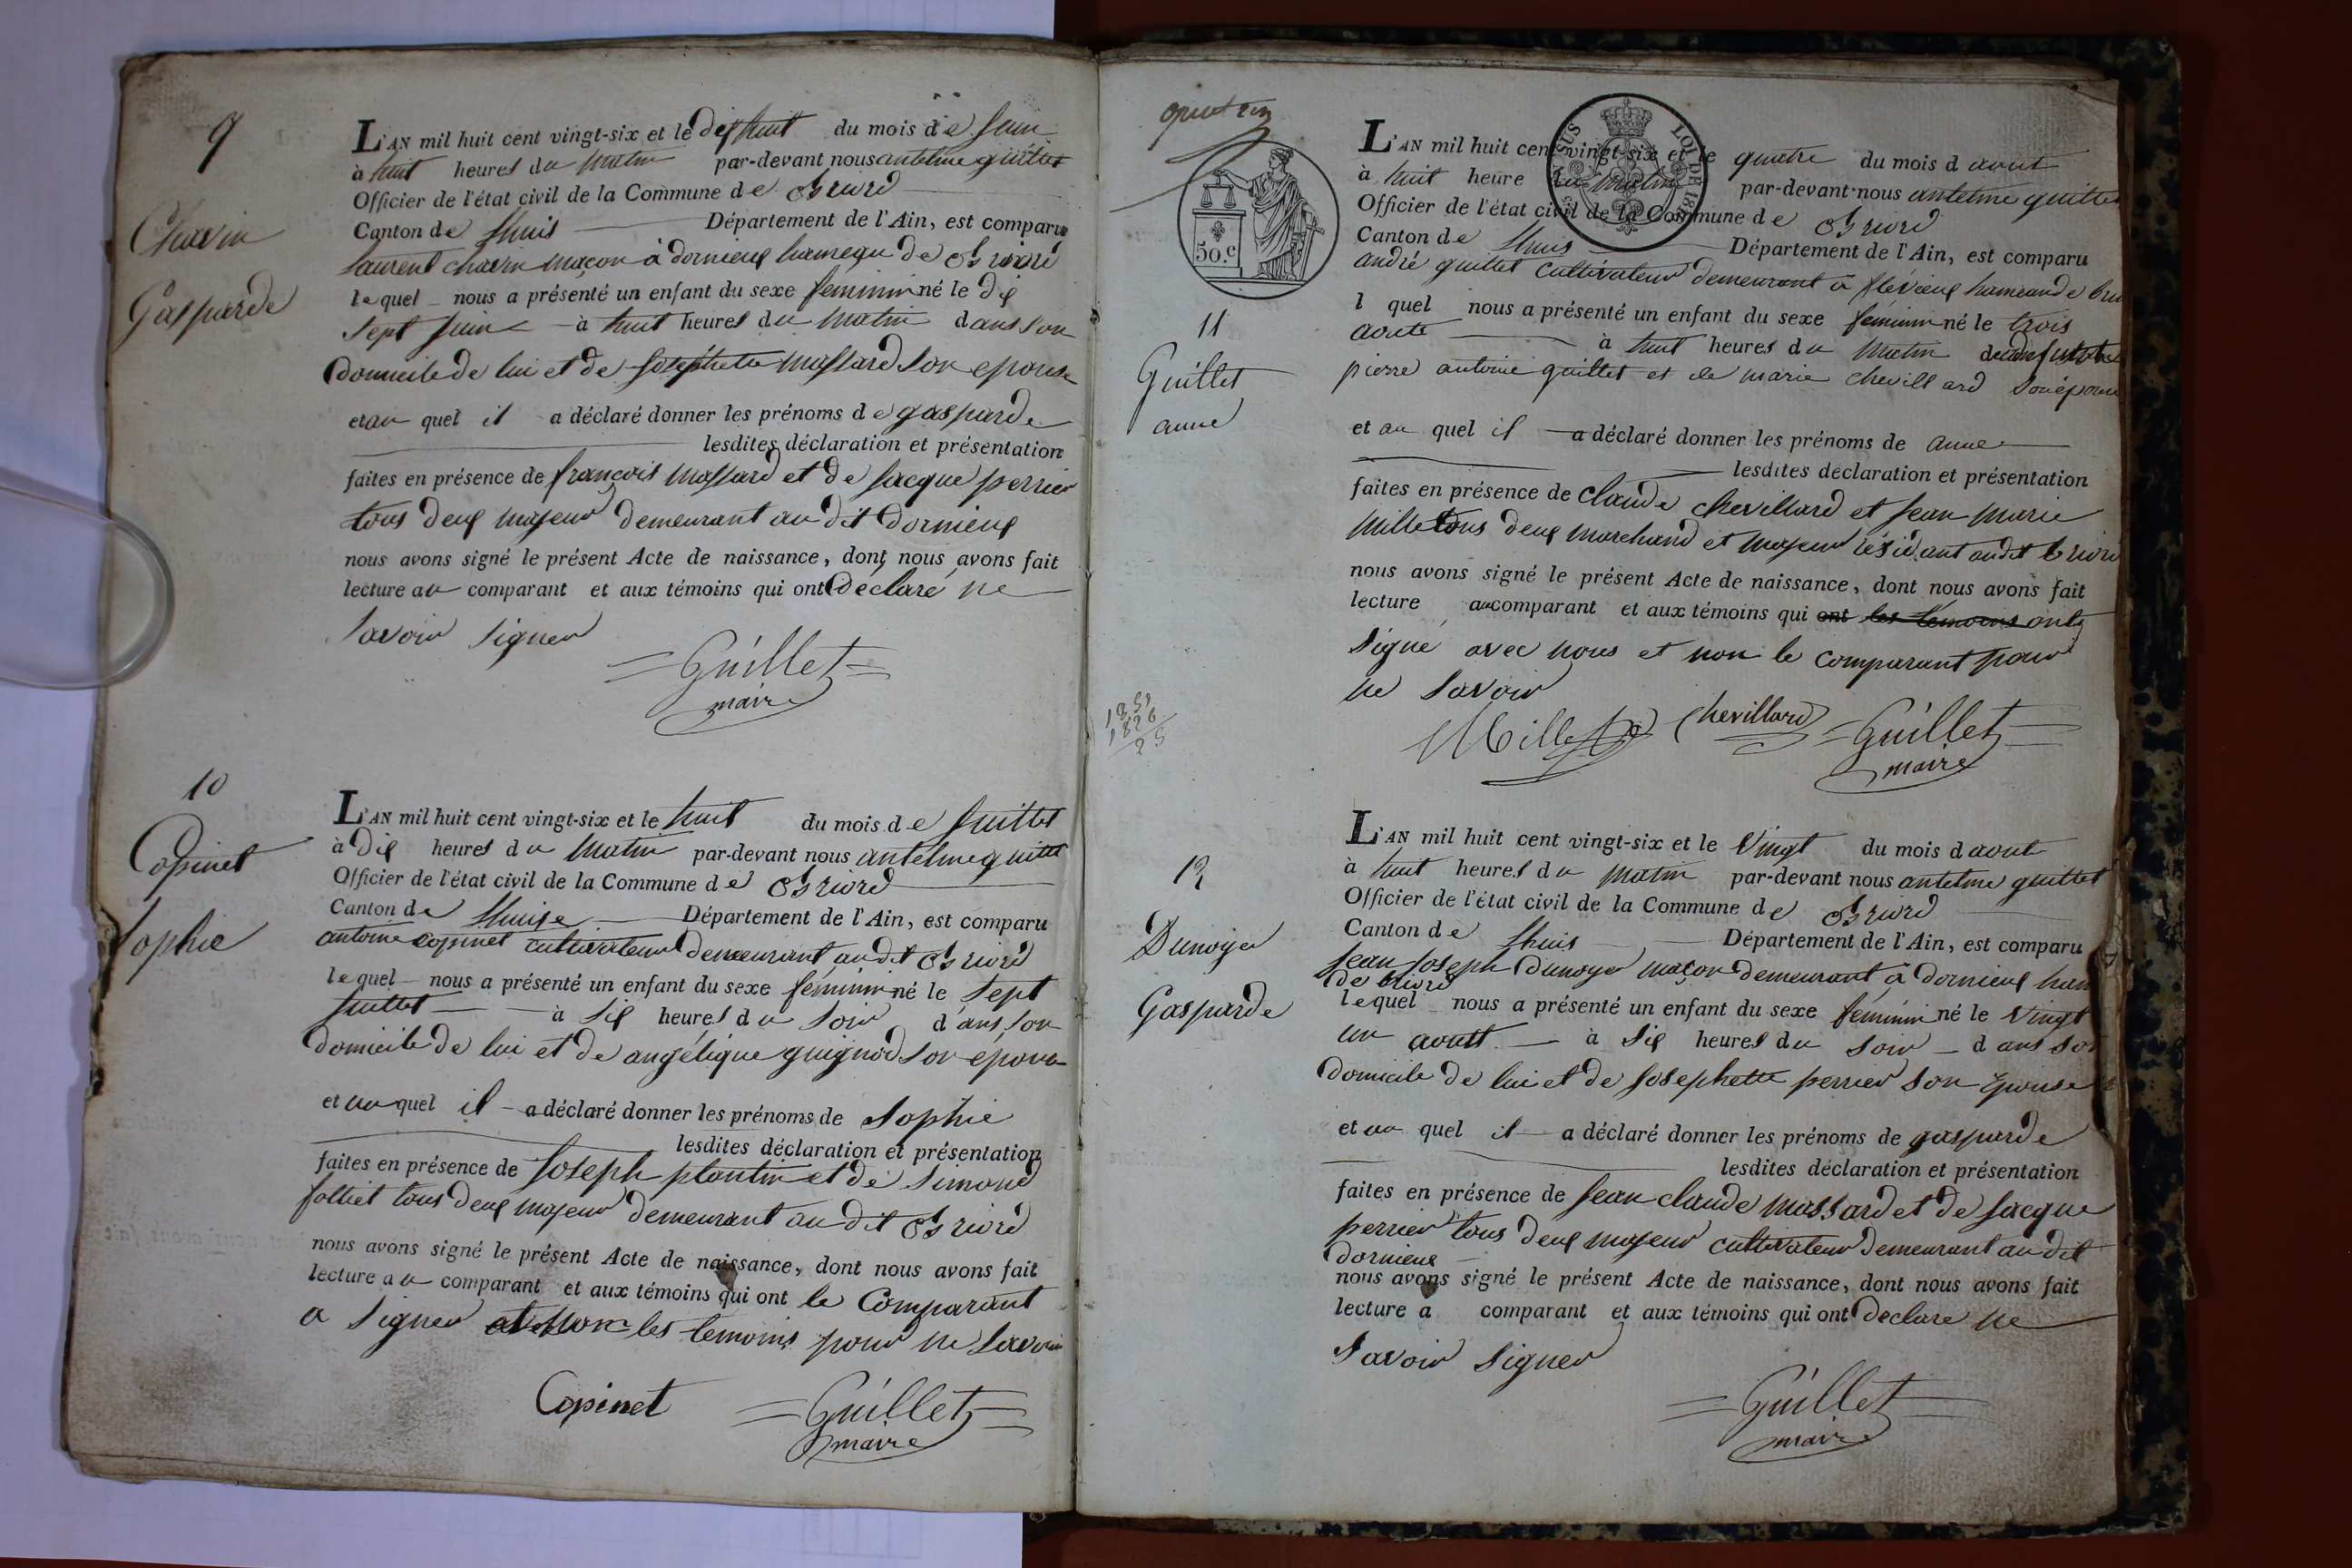 9
Chavin
Gasparde
L'AN mil huit cent vingt-six et le dix huit du mois de juin
à huit heures du matin par-devant nous antelme guillet
Officier de l'état civil de la Commune de Briord
Canton de Lhuis Département de l'Ain, est comparu
laurent chavin maçon à dornieux hameau de Briord
lequel nous a présenté un enfant du sexe feminin né le dix
sept juin à huit heures du matin dans son
domicile de lui et de josephette massard son epouse
et au quel il a déclaré donner les prénoms de gasparde
lesdites déclaration et présentation
faites en présence de françois massard et de jacque perrier
tous deux majeur demeurant au dit dornieux
nous avons signé le présent Acte de naissance, dont nous avons fait
lecture au comparant et aux témoins qui ont déclaré ne
savoir signer
Guillet
maire
10
Copinet
Sophie
L'AN mil huit cent vingt-six et le huit du mois de juillet
à dix heures du matin par-devant nous antelme guillet
Officier de l'état civil de la Commune de Briord
Canton de Lhuise Département de l'Ain, est comparu
antoine copinet cultivateur demeurant au dit Briord
lequel nous a présenté un enfant du sexe féminin né le sept
juillet à six heures du soir dans son
domicile de lui et de angélique guignod son epouse
et au quel il a déclaré donner les prénoms de Sophie
lesdites déclaration et présentation
faites en présence de joseph plantin et de simond
folliet tous deux majeur demeurant au dit Briord
nous avons signé le présent Acte de naissance, dont nous avons fait
lecture au comparant et aux témoins qui ont le comparant
a signer et non les temoins pour ne savoir
Copinet Guillet
maire
50.c
11
Guillet
anne
L'AN mil huit cent vingt-six et le quatre du mois d aout
à huit heure du matin par-devant nous antelme guillet
Officier de l'état civil de la Commune de Briord
Canton de Lhuis Département de l'Ain, est comparu
andré guillet cultivateur demeurant a flévieux hameau de
l quel nous a présenté un enfant du sexe féminin né le trois
aoute à huit heures du matin
pierre antoine guillet et de marie chevillard son épouse
et au quel il a déclaré donner les prénoms de anne
lesdites déclaration et présentation
faites en présence de claude chevillard et jean marie
millet tous deux marchand et majeur résidant au dit briord
nous avons signé le présent Acte de naissance, dont nous avons fait
lecture au comparant et aux témoins qui ont les témoins ont
signé avec nous et non le comparant pour
ne savoir
Millet Chevillard Guillet
maire
1851
1826
25
12
Dunoyer
Gasparde
L'AN mil huit cent vingt-six et le vingt du mois d aout
à huit heures du matin par-devant nous antelme guillet
Officier de l'état civil de la Commune de Briord
Canton de Lhuis Département de l'Ain, est comparu
jean joseph dunoyer maçon demeurant à dornieux ham
de briord
lequel nous a présenté un enfant du sexe féminin né le vingt
un aoutt à six heures du soir dans son
domicile de lui et de josephette perrier son épouse
et au quel il a déclaré donner les prénoms de gasparde
lesdites déclaration et présentation
faites en présence de jean claude massard et de jacque
perrier tous deux majeur cultivateur demeurant au dit
dornieux
nous avons signé le présent Acte de naissance, dont nous avons fait
lecture a comparant et aux témoins qui ont declare ne
savoir signer
Guillet
maire